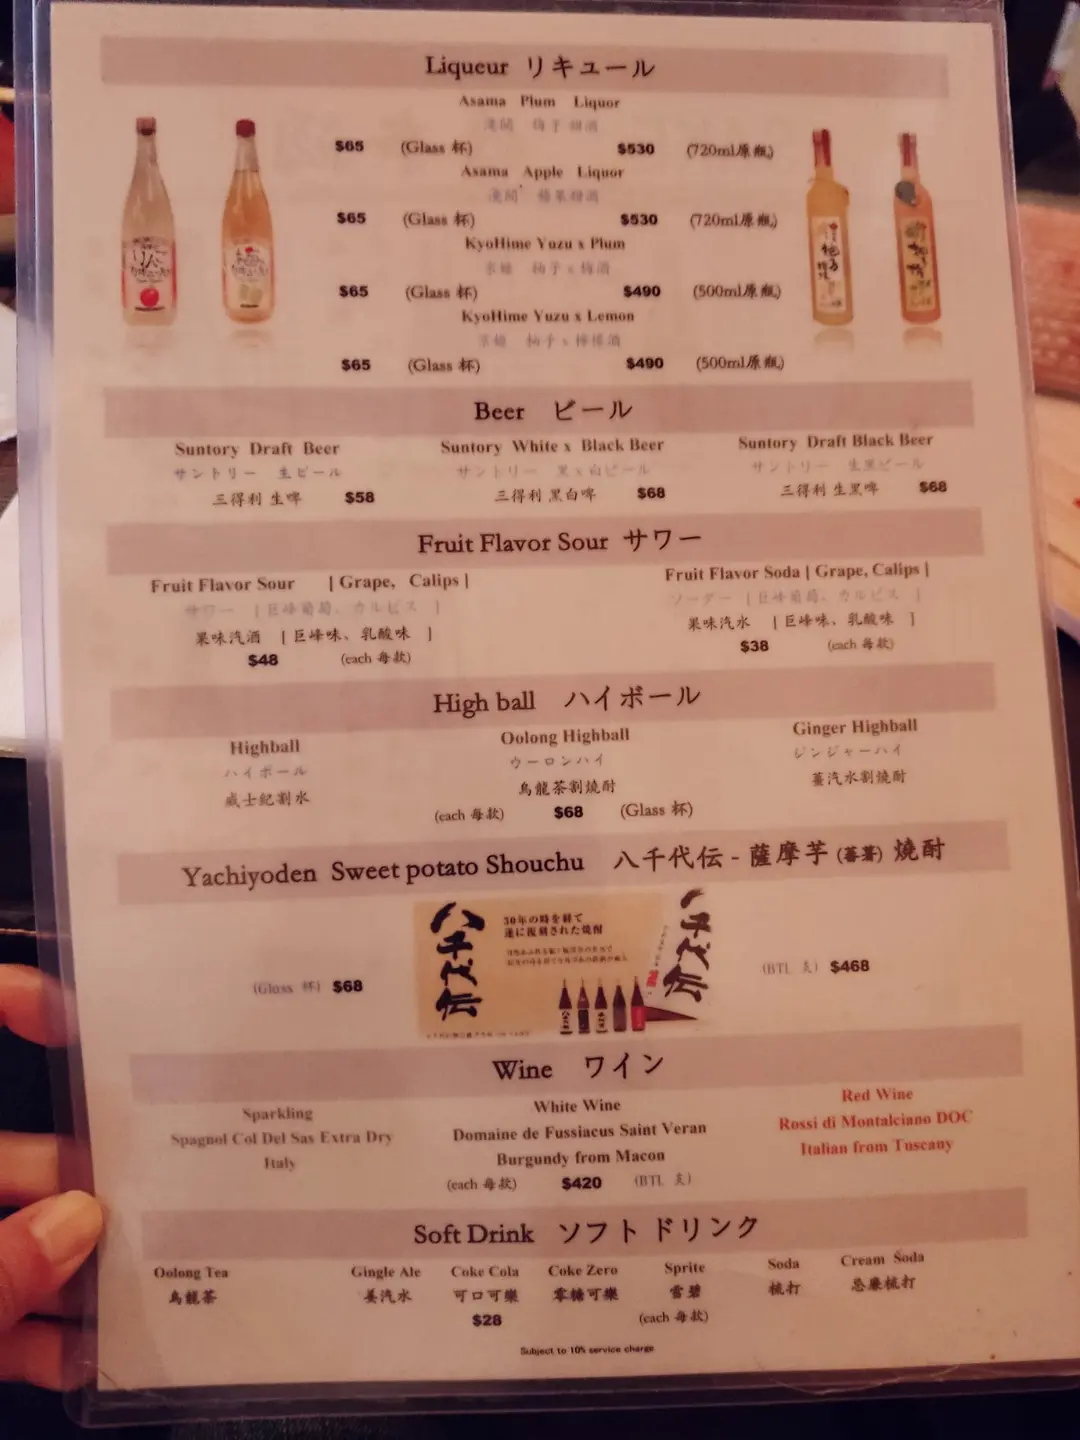 Liqueur リキュール
Asama Plum Liquor
浅間 梅子甜酒
$65 (Glass 杯) $530 (720ml原瓶)
Asama Apple Liquor
浅間 蘋果甜酒
$65 (Glass 杯) $530 (720ml原瓶)
KyoHime Yuzu x Plum
京姫 柚子x梅酒
$65 (Glass 杯) $490 (500ml原瓶)
KyoHime Yuzu x Lemon
京姫 柚子x檸檬酒
$65 (Glass 杯) $490 (500ml原瓶)
Beer ビール
Suntory Draft Beer Suntory White x Black Beer Suntory Draft Black Beer
サントリー 生ビール サントリー 黒x白ビール サントリー 生黒ビール
三得利 生啤 $58 三得利 黑白啤 $68 三得利 生黑啤 $68
Fruit Flavor Sour サワー
Fruit Flavor Sour | Grape, Calips | Fruit Flavor Soda | Grape, Calips |
サワー [ 巨峰葡萄、カルピス ] ソーダー [ 巨峰葡萄、カルピス ]
果味汽酒 [ 巨峰味、乳酸味 ] 果味汽水 [ 巨峰味、乳酸味 ]
$48 (each 每款) $38 (each 每款)
High ball ハイボール
Highball Oolong Highball Ginger Highball
ハイボール ウーロンハイ ジンジャーハイ
威士紀割水 烏龍茶割燒酎 薑汽水割燒酎
(each 每款) $68 (Glass 杯)
Yachiyoden Sweet potato Shouchu 八千代伝 - 薩摩芋 (蕃薯) 燒酎
八千代伝
30年の時を経て
遂に復刻された焼酎
八千代伝
(Glass 杯) $68 (BTL 支) $468
Wine ワイン
Sparkling White Wine Red Wine
Spagnol Col Del Sas Extra Dry Domaine de Fussiacus Saint Veran Rossi di Montalciano DOC
Italy Burgundy from Macon Italian from Tuscany
(each 每款) $420 (BTL 支)
Soft Drink ソフト ドリンク
Oolong Tea Gingle Ale Coke Cola Coke Zero Sprite Soda Cream Soda
烏龍茶 姜汽水 可口可樂 零糖可樂 雪碧 梳打 忌廉梳打
$28 (each 每款)
Subject to 10% service charge